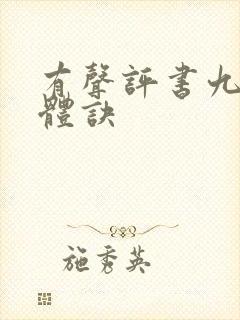 有聲評書九
體訣
施秀英